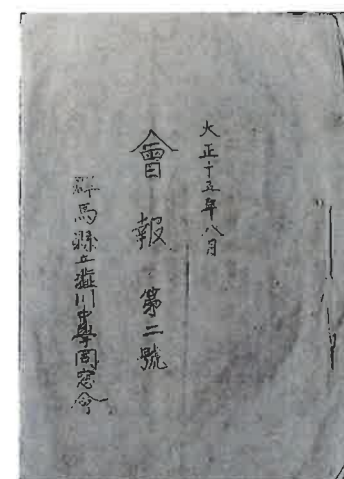 大正十五年八月
會報 第二號
群馬縣立澁川中學同窓會